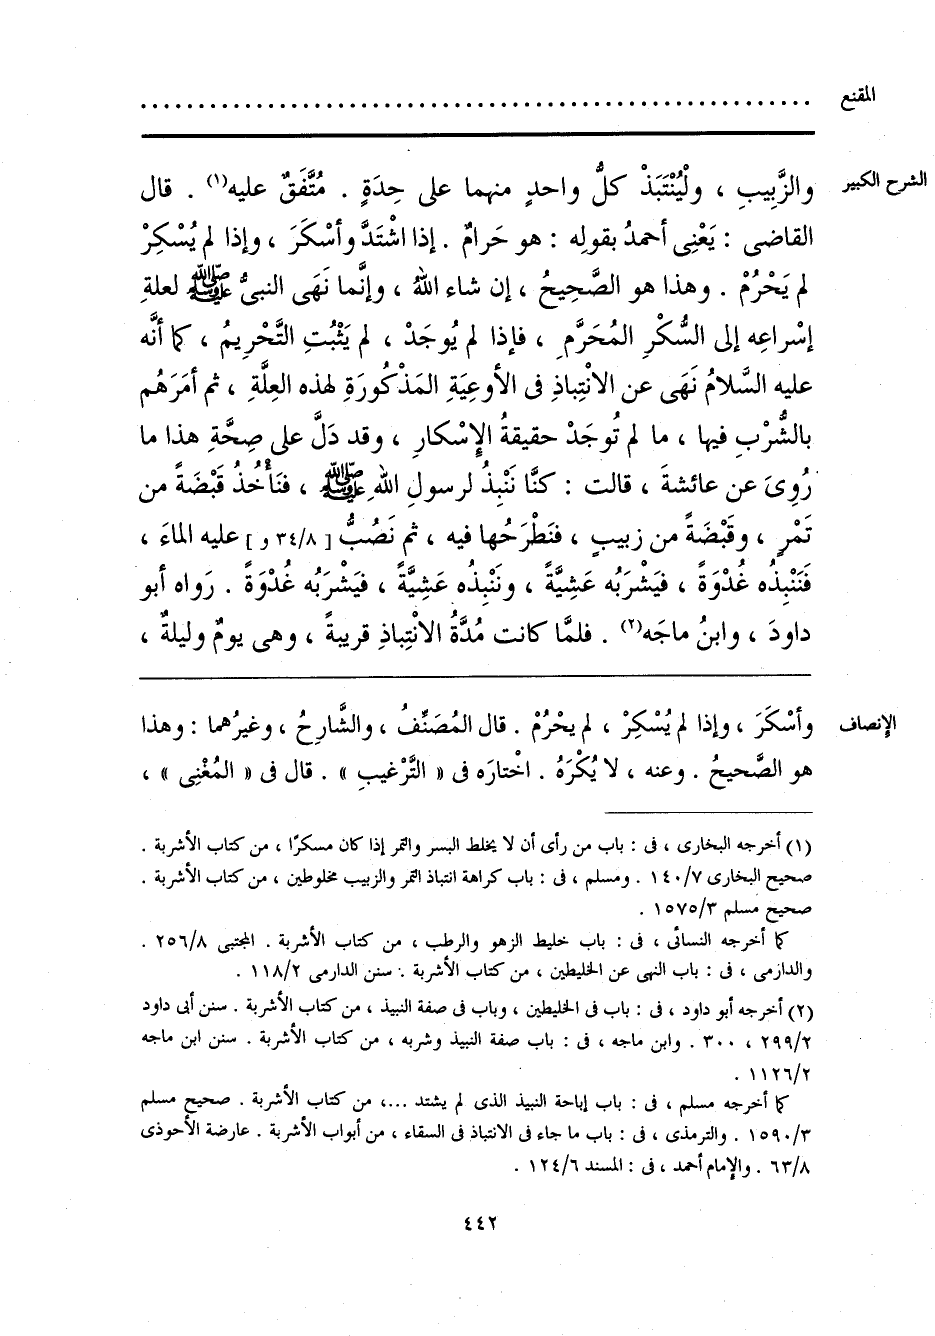 المقنع ............................................................
الشرح الكبير والزَّبِيبِ ، ولْيُنْتَبَذْ كلُّ واحدٍ منهما على حِدَةٍ . مُتَّفَقٌ عليه(١) . قال
القاضى : يَعْنِى أحمدُ بقولِه : هو حَرامٌ . إذا اشْتَدَّ وأسْكَرَ ، وإذا لم يُسْكِرْ
لم يَحْرُمْ . وهذا هو الصَّحِيحُ ، إن شاء اللهُ ، وإنَّما نَهَى النبىُّ ﷺ لعلةِ
إسْراعِه إلى السُّكْرِ المُحَرَّمِ ، فإذا لم يُوجَدْ ، لم يَثْبُتِ التَّحْرِيمُ ، كما أنَّه
عليه السَّلامُ نَهَى عن الانْتِباذِ فى الأوعِيَةِ المَذْكُورَةِ لهذه العِلَّةِ ، ثم أمَرَهُم
بالشُّرْبِ فيها ، ما لم تُوجَدْ حقيقةُ الإِسْكارِ ، وقد دَلَّ على صِحَّةِ هذا ما
رُوِىَ عن عائشةَ ، قالت : كنَّا نَنْبِذُ لرسولِ اللهِ ﷺ ، فنَأْخُذُ قَبْضَةً من
تَمْرٍ ، وقَبْضَةً من زبيبٍ ، فنَطْرَحُها فيه ، ثم نَصُبُّ [ ٣٤/٨ و ] عليه الماءَ ،
فنَنْبِذُه غُدْوَةً ، فيَشْرَبُه عَشِيَّةً ، ونَنْبِذُه عَشِيَّةً ، فيَشْرَبُه غُدْوَةً . رَواه أبو
داودَ ، وابنُ ماجَه(٢) . فلمَّا كانت مُدَّةُ الانْتِباذِ قريبةً ، وهى يومٌ وليلةٌ ،
الإنصاف وأسْكَرَ ، وإذا لم يُسْكِرْ ، لم يحْرُمْ . قال المُصَنِّفُ ، والشَّارِحُ ، وغيرُهما : وهذا
هو الصَّحيحُ . وعنه ، لا يُكْرَهُ . اخْتارَه فى « التَّرْغيبِ » . قال فى « المُغْنِى » ،
(١) أخرجه البخارى ، فى : باب من رأى أن لا يخلط البسر والتمر إذا كان مسكرًا ، من كتاب الأشربة .
صحيح البخارى ١٤٠/٧ . ومسلم ، فى : باب كراهة انتباذ التمر والزبيب مخلوطين ، من كتاب الأشربة .
صحيح مسلم ١٥٧٥/٣ .
كما أخرجه النسائى ، فى : باب خليط الزهو والرطب ، من كتاب الأشربة . المجتبى ٢٥٦/٨ .
والدارمى ، فى : باب النهى عن الخليطين ، من كتاب الأشربة . سنن الدارمى ١١٨/٢ .
(٢) أخرجه أبو داود ، فى : باب فى الخليطين ، وباب فى صفة النبيذ ، من كتاب الأشربة . سنن أبى داود
٢٩٩/٢ ، ٣٠٠ . وابن ماجه ، فى : باب صفة النبيذ وشربه ، من كتاب الأشربة . سنن ابن ماجه
١١٢٦/٢ .
كما أخرجه مسلم ، فى : باب إباحة النبيذ الذى لم يشتد ...، من كتاب الأشربة . صحيح مسلم
١٥٩٠/٣ . والترمذى ، فى : باب ما جاء فى الانتباذ فى السقاء ، من أبواب الأشربة . عارضة الأحوذى
٦٣/٨ . والإمام أحمد ، فى : المسند ١٢٤/٦ .
٤٤٢